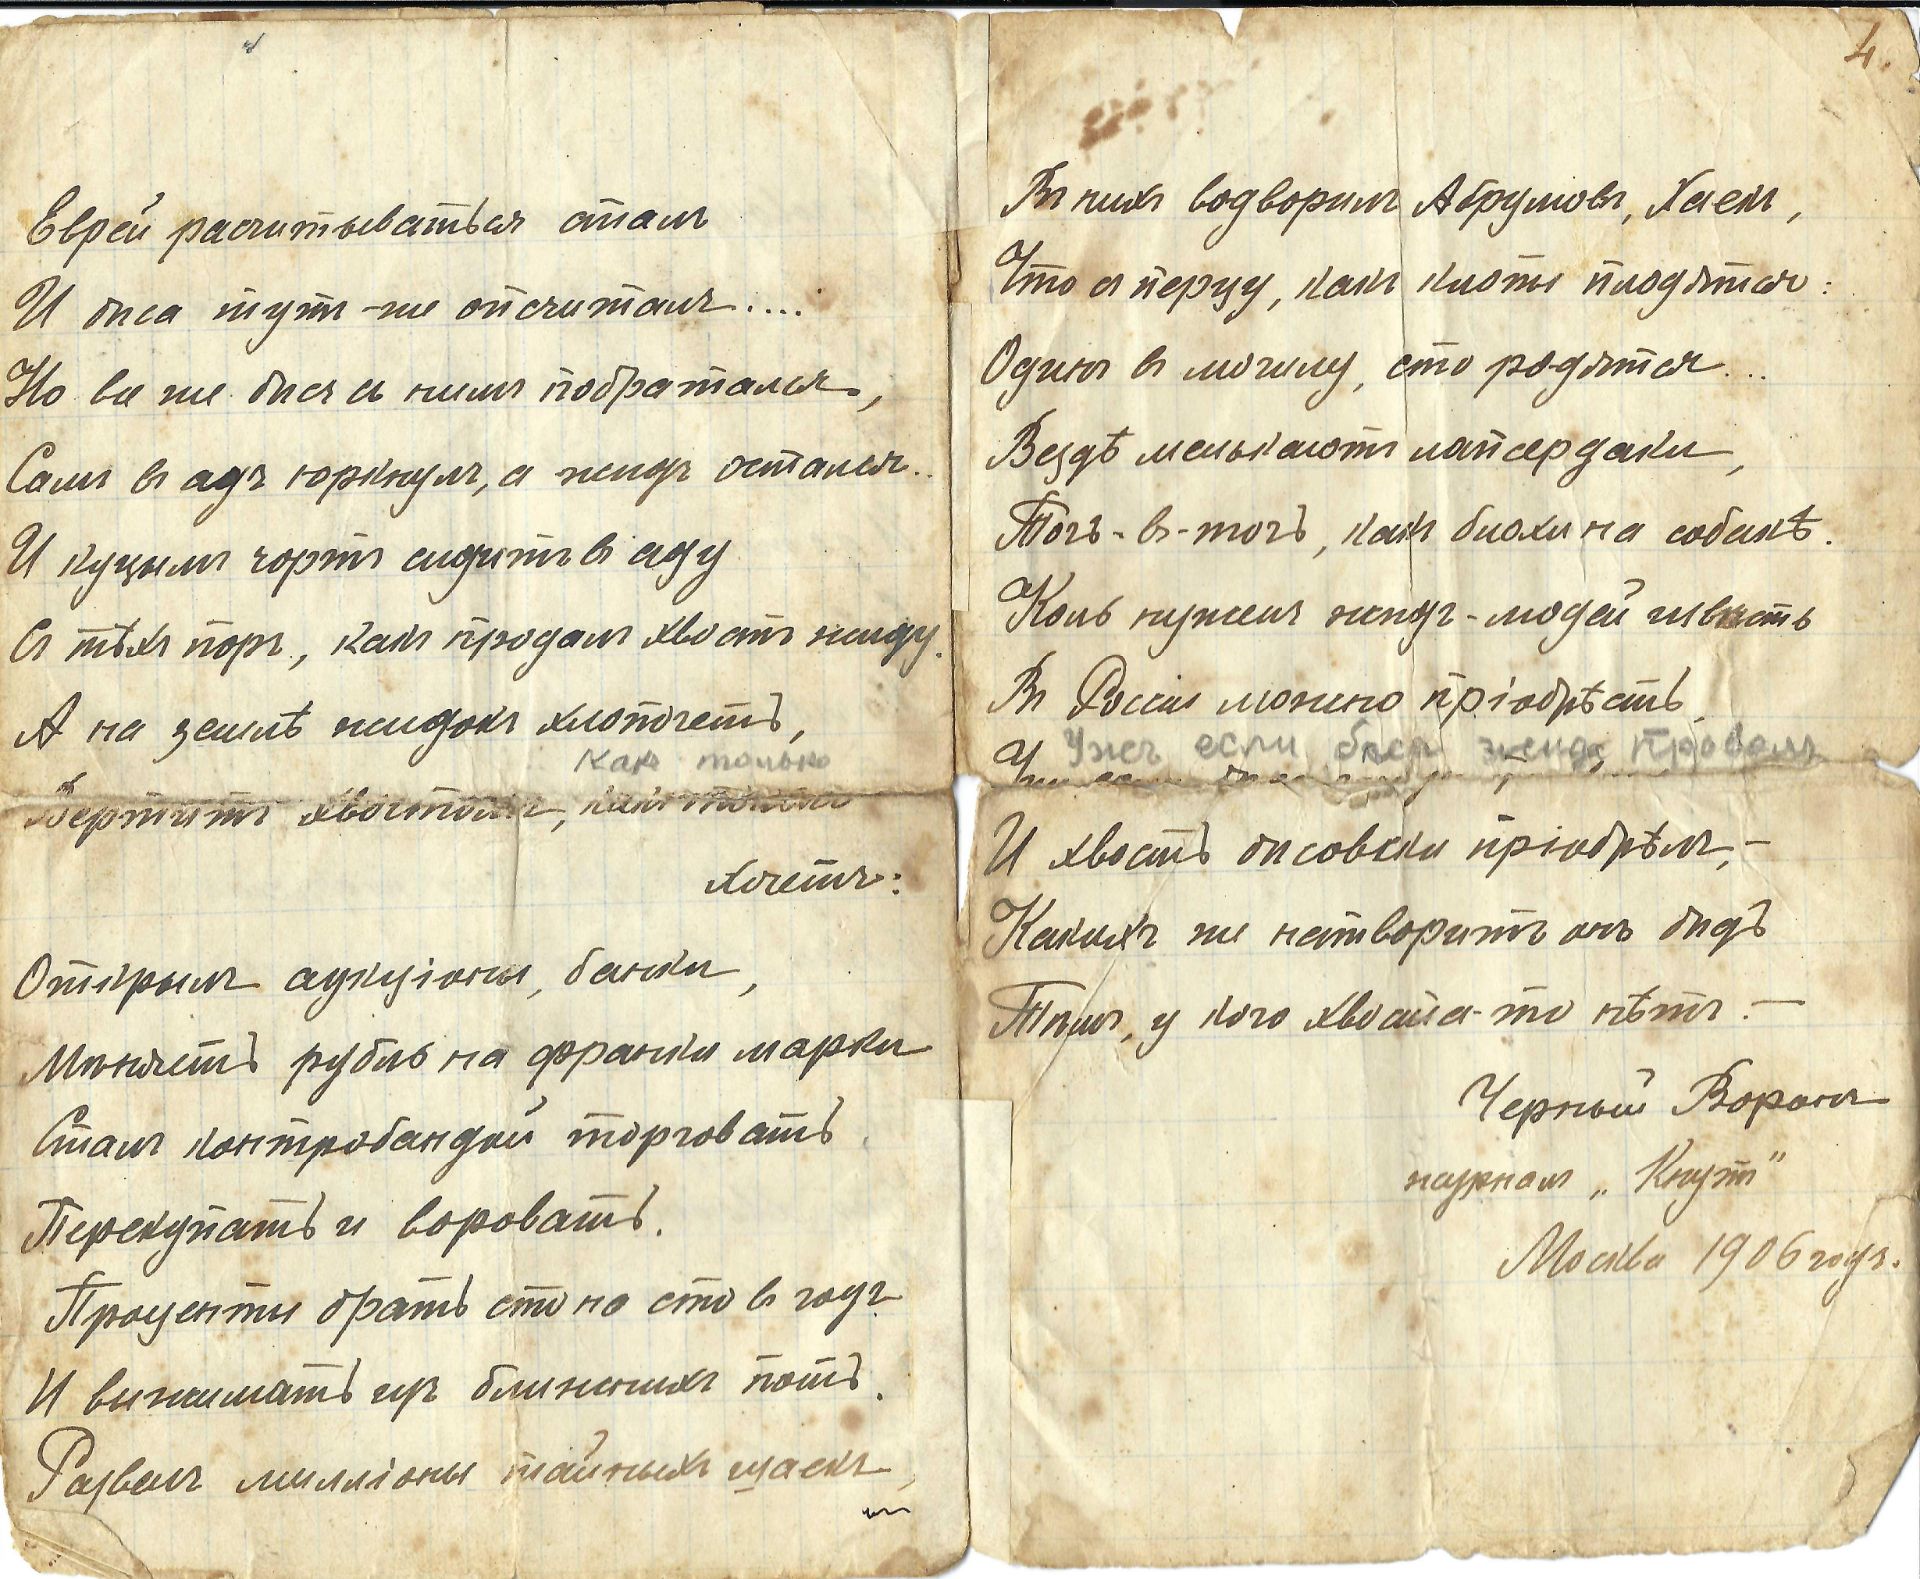 Еврей расчитываться сталъ
И бѣса тутъ-же обсчиталъ....
Но все же бѣсъ съ нимъ побратался,
Самъ въ адъ юркнулъ, а жидъ остался..
И куцымъ чортъ сидитъ въ аду
Съ тѣхъ поръ, какъ продалъ хвостъ жиду.
А на землѣ жидокъ хлопочетъ,
Как только
Вертитъ хвостомъ, какъ только
хочетъ:
Открылъ аукціоны, банки,
Мѣняетъ рубль на франки марки
Сталъ контробандой торговать
Перекупать и воровать.
Проценты брать сто на сто въ годъ
И выжимать изъ ближнихъ потъ.
Развелъ милліоны тайныхъ шаекъ,
4.
Въ нихъ водворилъ Абрумовъ, Хаекъ,
Что съ перцу, какъ клопы плодятся:
Одинъ въ могилу, сто родятся...
Вездѣ мелькаютъ лапсердаки,
Точь-въ-точь, какъ блохи на собакѣ.
Коль нуженъ жидъ-людей
Въ Россіи можно пріобрѣсть
Ужъ если бѣса жидъ провелъ
И хвостъ бѣсовскій пріобрѣлъ,-
Какихъ же натворитъ онъ бѣдъ
Тѣмъ, у кого хвоста-то нѣтъ. —
Черный Воронъ
журнал „Кнут"
Москва 1906 годъ.